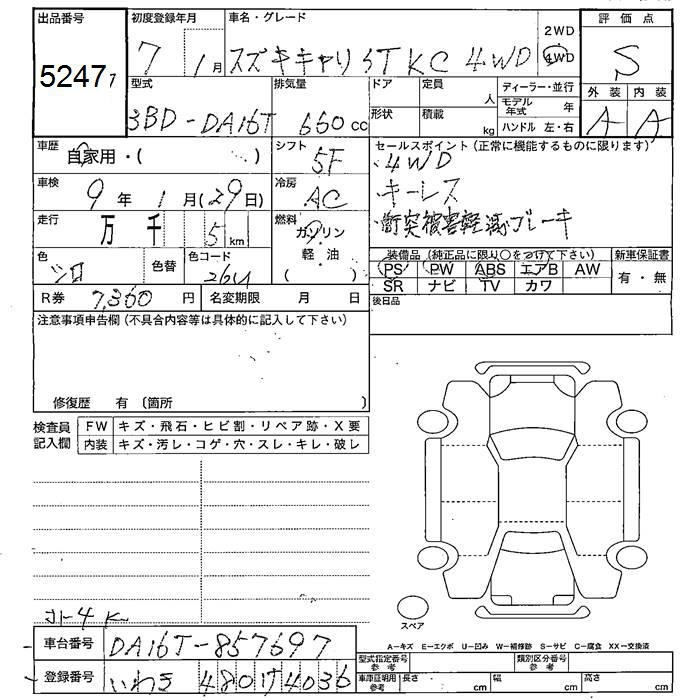 出品番号 初度登録年月 車名・グレード 2WD 評価点
52477 7 1月 スズキキャリ KC 4WD 4WD S
型式 排気量 ドア 定員 人 ディーラー・並行 外装 内装
3BD-DA16T 660cc 形状 積載 kg モデル年式 年 A A
ハンドル 左・右
車歴 自家用・( ) シフト 5F セールスポイント(正常に機能するものに限ります)
・4WD
車検 9年1月(29日) 冷房 AC ・キーレス
走行 万 千 5km 燃料 ガソリン ・衝突被害軽減ブレーキ
軽・油
( )
色 シロ 色替 色コード 26U 装備品(純正品に限り○をつけて下さい) 新車保証書
PS PW ABS エアB AW 有・無
SR ナビ TV カワ
R券 7,360円 名変期限 月 日 後日品
注意事項申告欄(不具合内容等は具体的に記入して下さい)
修復歴 有(箇所 )
検査員記入欄 FW キズ・飛石・ヒビ割・リペア跡・X要
内装 キズ・汚レ・コゲ・穴・スレ・キレ・破レ
スペア
A-キズ E-エクボ U-凹み W-補修跡 S-サビ C-腐食 XX-交換済
車台番号 DA16T-857697 型式指定番号 参考 類別区分番号 参考
登録番号 いわき 480 け 4036 車庫証明用 参考 長さ cm 幅 cm 高さ cm